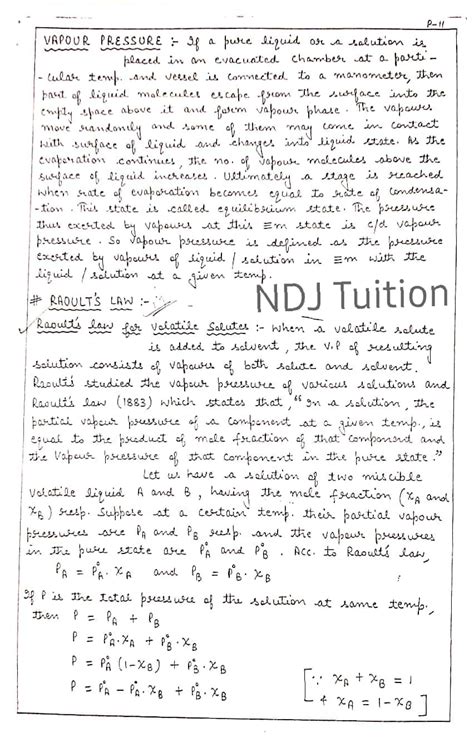 P-11
VAPOUR PRESSURE :- If a pure liquid or a solution is
placed in an evacuated chamber at a parti-
-cular temp. and vessel is connected to a manometer, then
part of liquid molecules escape from the surface into the
empty space above it and form vapour phase. The vapours
move randomly and some of them may come in contact
with surface of liquid and changes into liquid state. As the
evaporation continues, the no. of vapour molecules above the
surface of liquid increases. Ultimately a stage is reached
when rate of evaporation becomes equal to rate of condensa-
-tion. This state is called equilibrium state. The pressure
thus exerted by vapours at this ≡m state is c/d vapour
pressure. So vapour pressure is defined as the pressure
exerted by vapours of liquid / solution in ≡m with the
liquid / solution at a given temp.
# RAOULT'S LAW :-
NDJ Tuition
Raoult's law for Volatile Solutes :- When a volatile solute
is added to solvent, the V.P of resulting
solution consists of vapours of both solute and solvent.
Raoult's studied the vapour pressure of various solutions and
Raoult's law (1883) which states that, "In a solution, the
partial vapour pressure of a component at a given temp., is
equal to the product of mole fraction of that component and
the vapour pressure of that component in the pure state."
Let us have a solution of two miscible
volatile liquid A and B, having the mole fraction (xA and
xB) resp. Suppose at a certain temp. their partial vapour
pressures are PA and PB resp. and the vapour pressures
in the pure state are P°A and P°B. Acc. to Raoult's law,
PA = P°A . xA and PB = P°B . xB
If P is the total pressure of the solution at same temp.,
then P = PA + PB
P = P°A . xA + P°B . xB
P = P°A (1-xB) + P°B . xB
P = P°A - P°A . xB + P°B . xB
[∵ xA + xB = 1
4 xA = 1-xB]